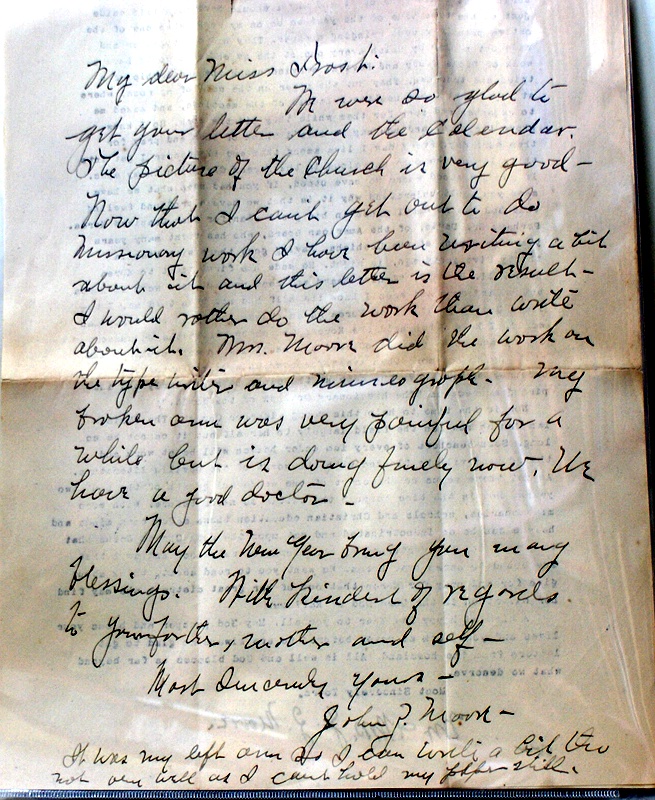 My dear Miss Frost:
We were so glad to
get your letter and the Calendar.
The picture of the Church is very good —
Now that I cant get out to do
missionary work I have been writing a bit
about it and this letter is the result —
I would rather do the work than write
about it. Mrs. Moore did the work on
the type writer and mimeograph. My
broken arm was very painful for a
while but is doing finely now. We
have a good doctor —
May the New Year bring you many
blessings. With kindest of regards
to your father, mother and self —
Most Sincerely yours —
John Z. Moore —
It was my left arm so I can write a bit tho
not very well as I cant hold my paper still.